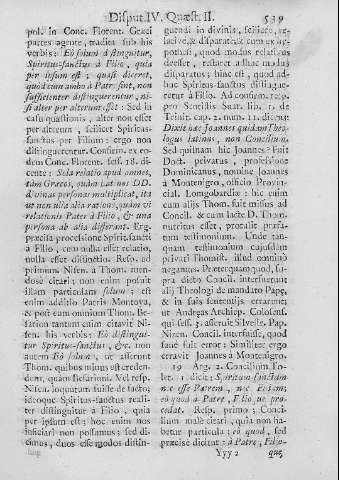 Disput. IV. Quæst. II. 539
pol. In Conc. Florent. Græci
partes agente, tradita sub his
verbis: Eò solùm distinguitur,
Spiritus-sanctus à Filio, quia
per ipsum est; quasi diceret,
quòd cum ambo à Patre sint, non
sufficienter distinguerentur, ni-
si alter per alterum esset: Sed in
casu quæstionis, alter non esset
per alterum, scilicet Spiritus-
sanctus per Filium: ergo non
distinguerentur. Confirm. ex eo-
dem Conc. Florent. sess. 18. di-
cente: Sola relatio apud omnes,
tàm Græcos, quàm Latinos DD.
divinas personas multiplicat, ita
ut non ulla alia ratione, quàm vi
relationis Pater à Filio, & una
persona ab alia differant. Erg.
præcisa processione Spirit. sancti
à Filio, cum nulla esset relatio,
nulla esset distinctio. Resp. ad
primum Nisen. à Thom. men-
dosè citari; non enim posuit
illam particulam solum: est
enim additio Patris Montoya,
& post eum omnium Thom. Be-
sarion tantum enim citavit Ni-
sen. his verbis: Eò distingui-
tur Spiritus-sanctus, &c. non
autem Eò solum, ut asserunt
Thom. quibus minus est creden-
dum, quàm Besarioni. Vel resp.
Nisen. loquutum fuisse de facto,
ideoque Spiritus-sanctus reali-
ter distinguitur à Filio, quia
per ipsum est; hoc enim nos
inficiari non possumus; sed di-
cimus, duos esse modos distin-
guendi in divinis, scilicet, re-
lativè, & disparatè; & cum ex hy-
pothesi, quod modus relativus
deesset, non deesset modus
disparatus; hinc est, quod ad-
huc Spiritus-sanctus distingue-
retur à Filio. Ad confirm. resp.
pro Scotistis Sunt. lib. 1. de
Trinit. cap. 2. num. 11. dicens:
Dixit hæc Joannes quidam Theo-
logus latinus, non Concilium.
Sed quisnam hic Joannes? Fuit
Doct. privatus, professione
Dominicanus, nomine Joannes
à Montenigro, officio Provin-
cial. Longobardiæ: hic enim
cum aliis Thom. fuit missus ad
Concil. & cum lacte D. Thom.
nutritus esset, protulit præfa-
tum testimonium. Unde tan-
quam testimonium cujusdam
privati Thomist. illud omninò
negamus. Præterquam quod, su-
pra dicto Concil. interfuerunt
alii Theologi de mandato Papæ,
& in suis sententiis errarint;
ut Andreas Archiep. Colosens.
qui sess. 5. asseruit Silvestr. Pap.
Nicen. Concil. interfuisse, quod
sanè fuit error: Similiter ergo
erravit Joannes à Montenigro.
19 Arg. 2. Concilium To-
let. 1. dicit: Spiritum sanctum
nec esse Patrem, nec Filium,
eò quod à Patre, Filioque pro-
cedat. Resp. primo; Conci-
lium malè citari, quia non ha-
betur particula: eò quod, sed
præcisè dicitur: à Patre, Filio-
Yyy 2 que